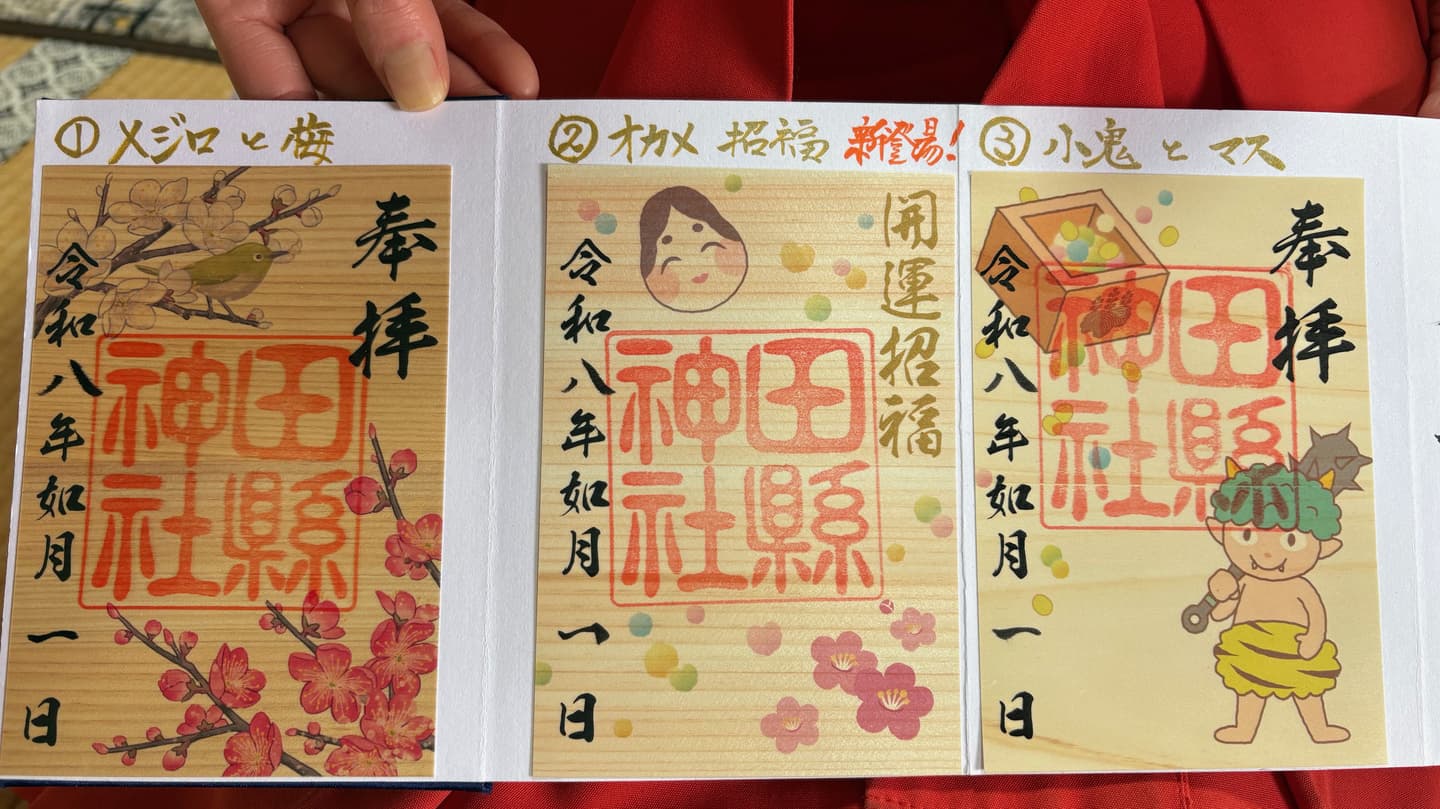 ①メジロと梅
奉拝
田縣
神社
令和八年如月一日
②オカメ 招福 新登場!
開運招福
田縣
神社
令和八年如月一日
③小鬼とマス
奉拝
田縣
神社
令和八年如月一日